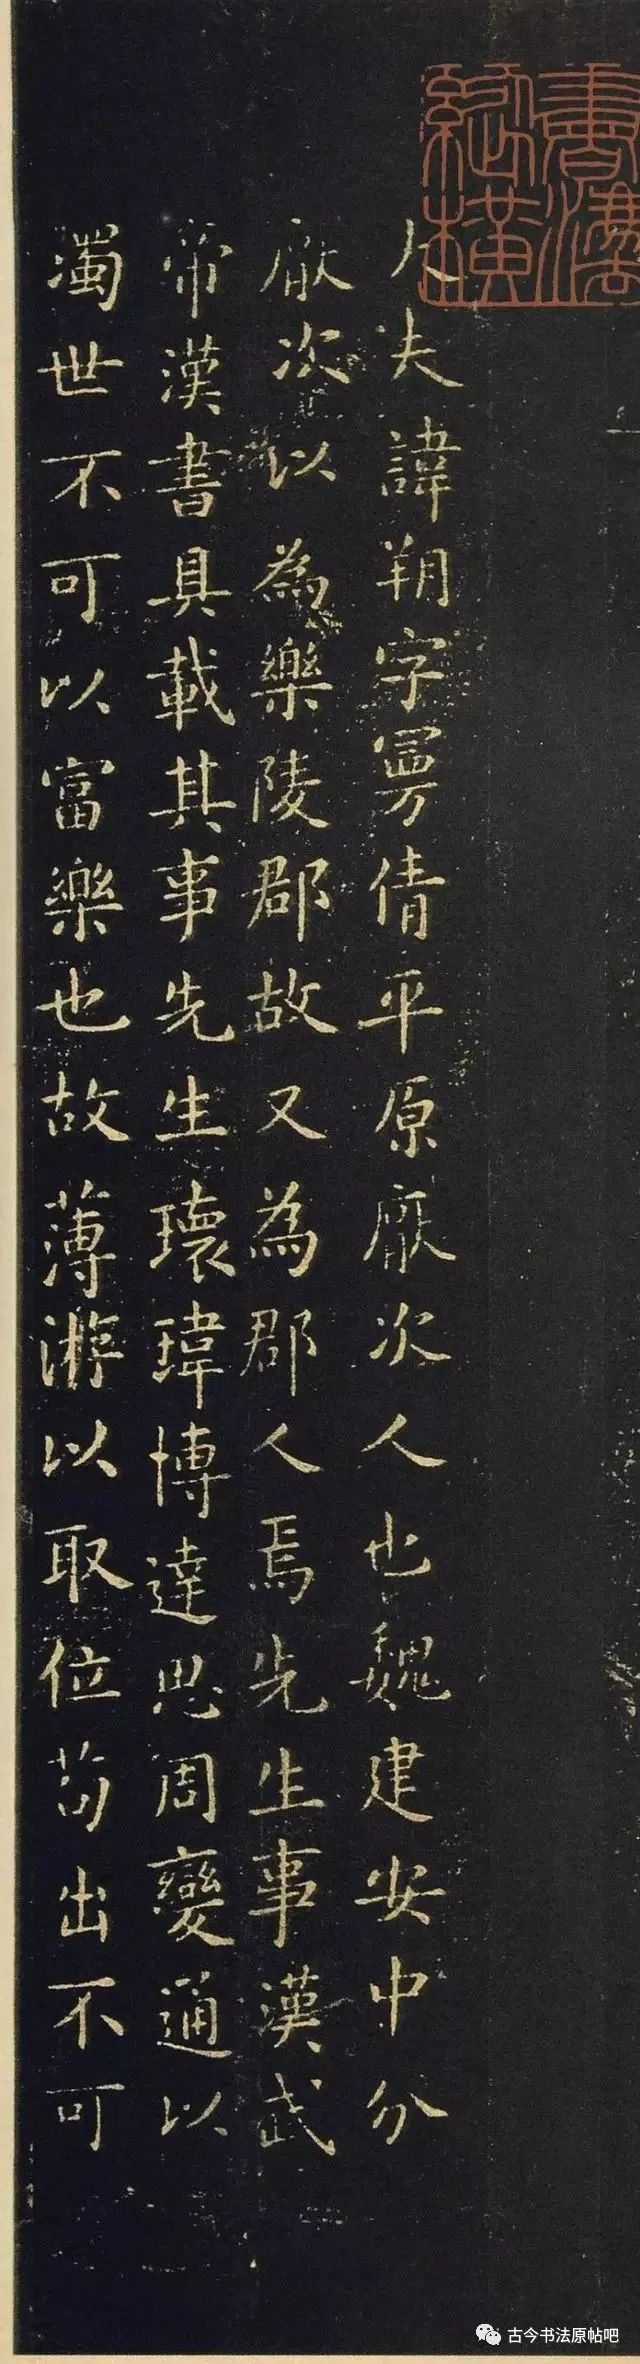 書法
縱橫
大夫諱朔字曼倩平原厭次人也魏建安中分
厭次以為樂陵郡故又為郡人焉先生事漢武
帝漢書具載其事先生瓌瑋博達思周變通以
濁世不可以富樂也故薄游以取位苟出不可
古今书法原帖吧